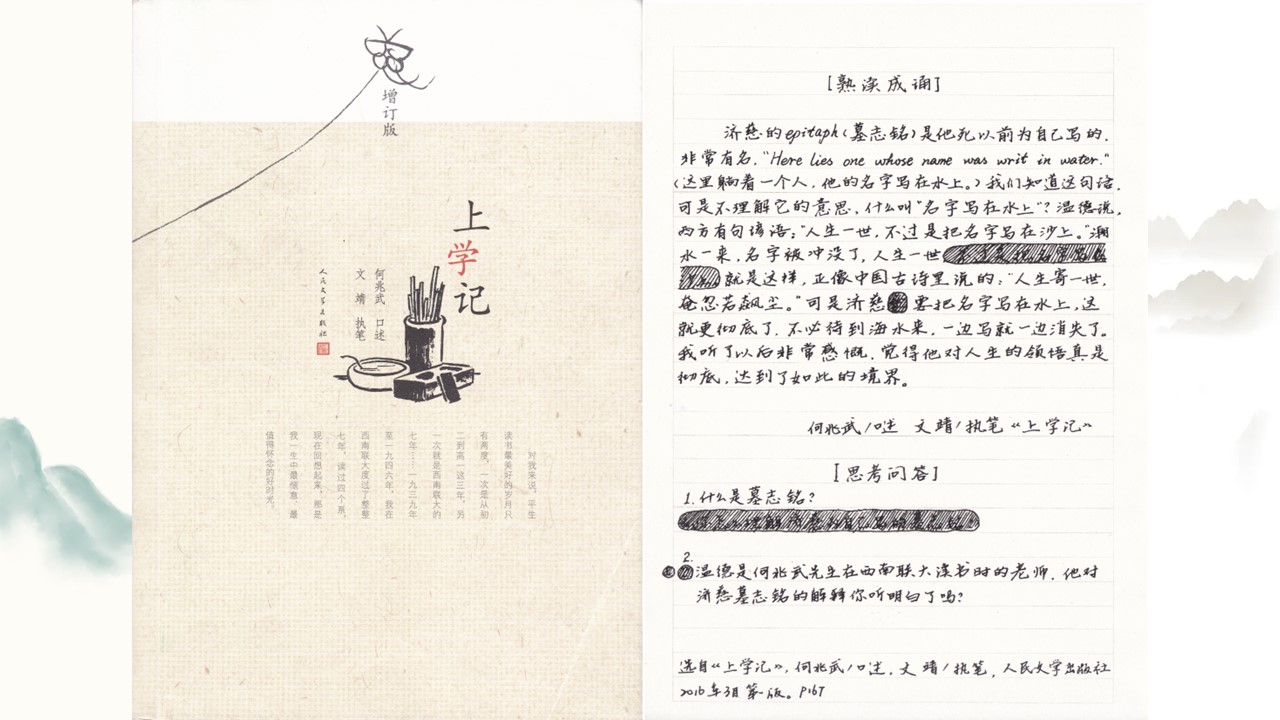 增订版
上学记
何兆武 口述
文 靖 执笔
人民文学出版社
对我来说，平生
读书最美好的岁月只
有两度，一次是从初
二到高一这三年，另
一次就是西南联大的
七年……一九三九年
至一九四六年，我在
西南联大度过了整整
七年，读过四个系，
现在回想起来，那是
我一生中最惬意、最
值得怀念的好时光。
[熟读成诵]
济慈的epitaph(墓志铭)是他死以前为自己写的，
非常有名，"Here lies one whose name was writ in water."
(这里躺着一个人，他的名字写在水上。)我们知道这句话，
可是不理解它的意思，什么叫"名字写在水上"？温德说，
西方有句谚语："人生一世，不过是把名字写在沙上。"潮
水一来，名字被冲没了，人生一世
就是这样，正像中国古诗里说的："人生寄一世，
奄忽若飙尘。"可是济慈要把名字写在水上，这
就更彻底了，不必待到海水来，一边写就一边消失了。
我听了以后非常感慨，觉得他对人生的领悟真是
彻底，达到了如此的境界。
何兆武/口述 文靖/执笔《上学记》
[思考问答]
1.什么是墓志铭？
2.
温德是何兆武先生在西南联大读书时的老师，他对
济慈墓志铭的解释你听明白了吗？
选自《上学记》，何兆武/口述，文靖/执笔，人民文学出版社
2016年3月第一版。P167